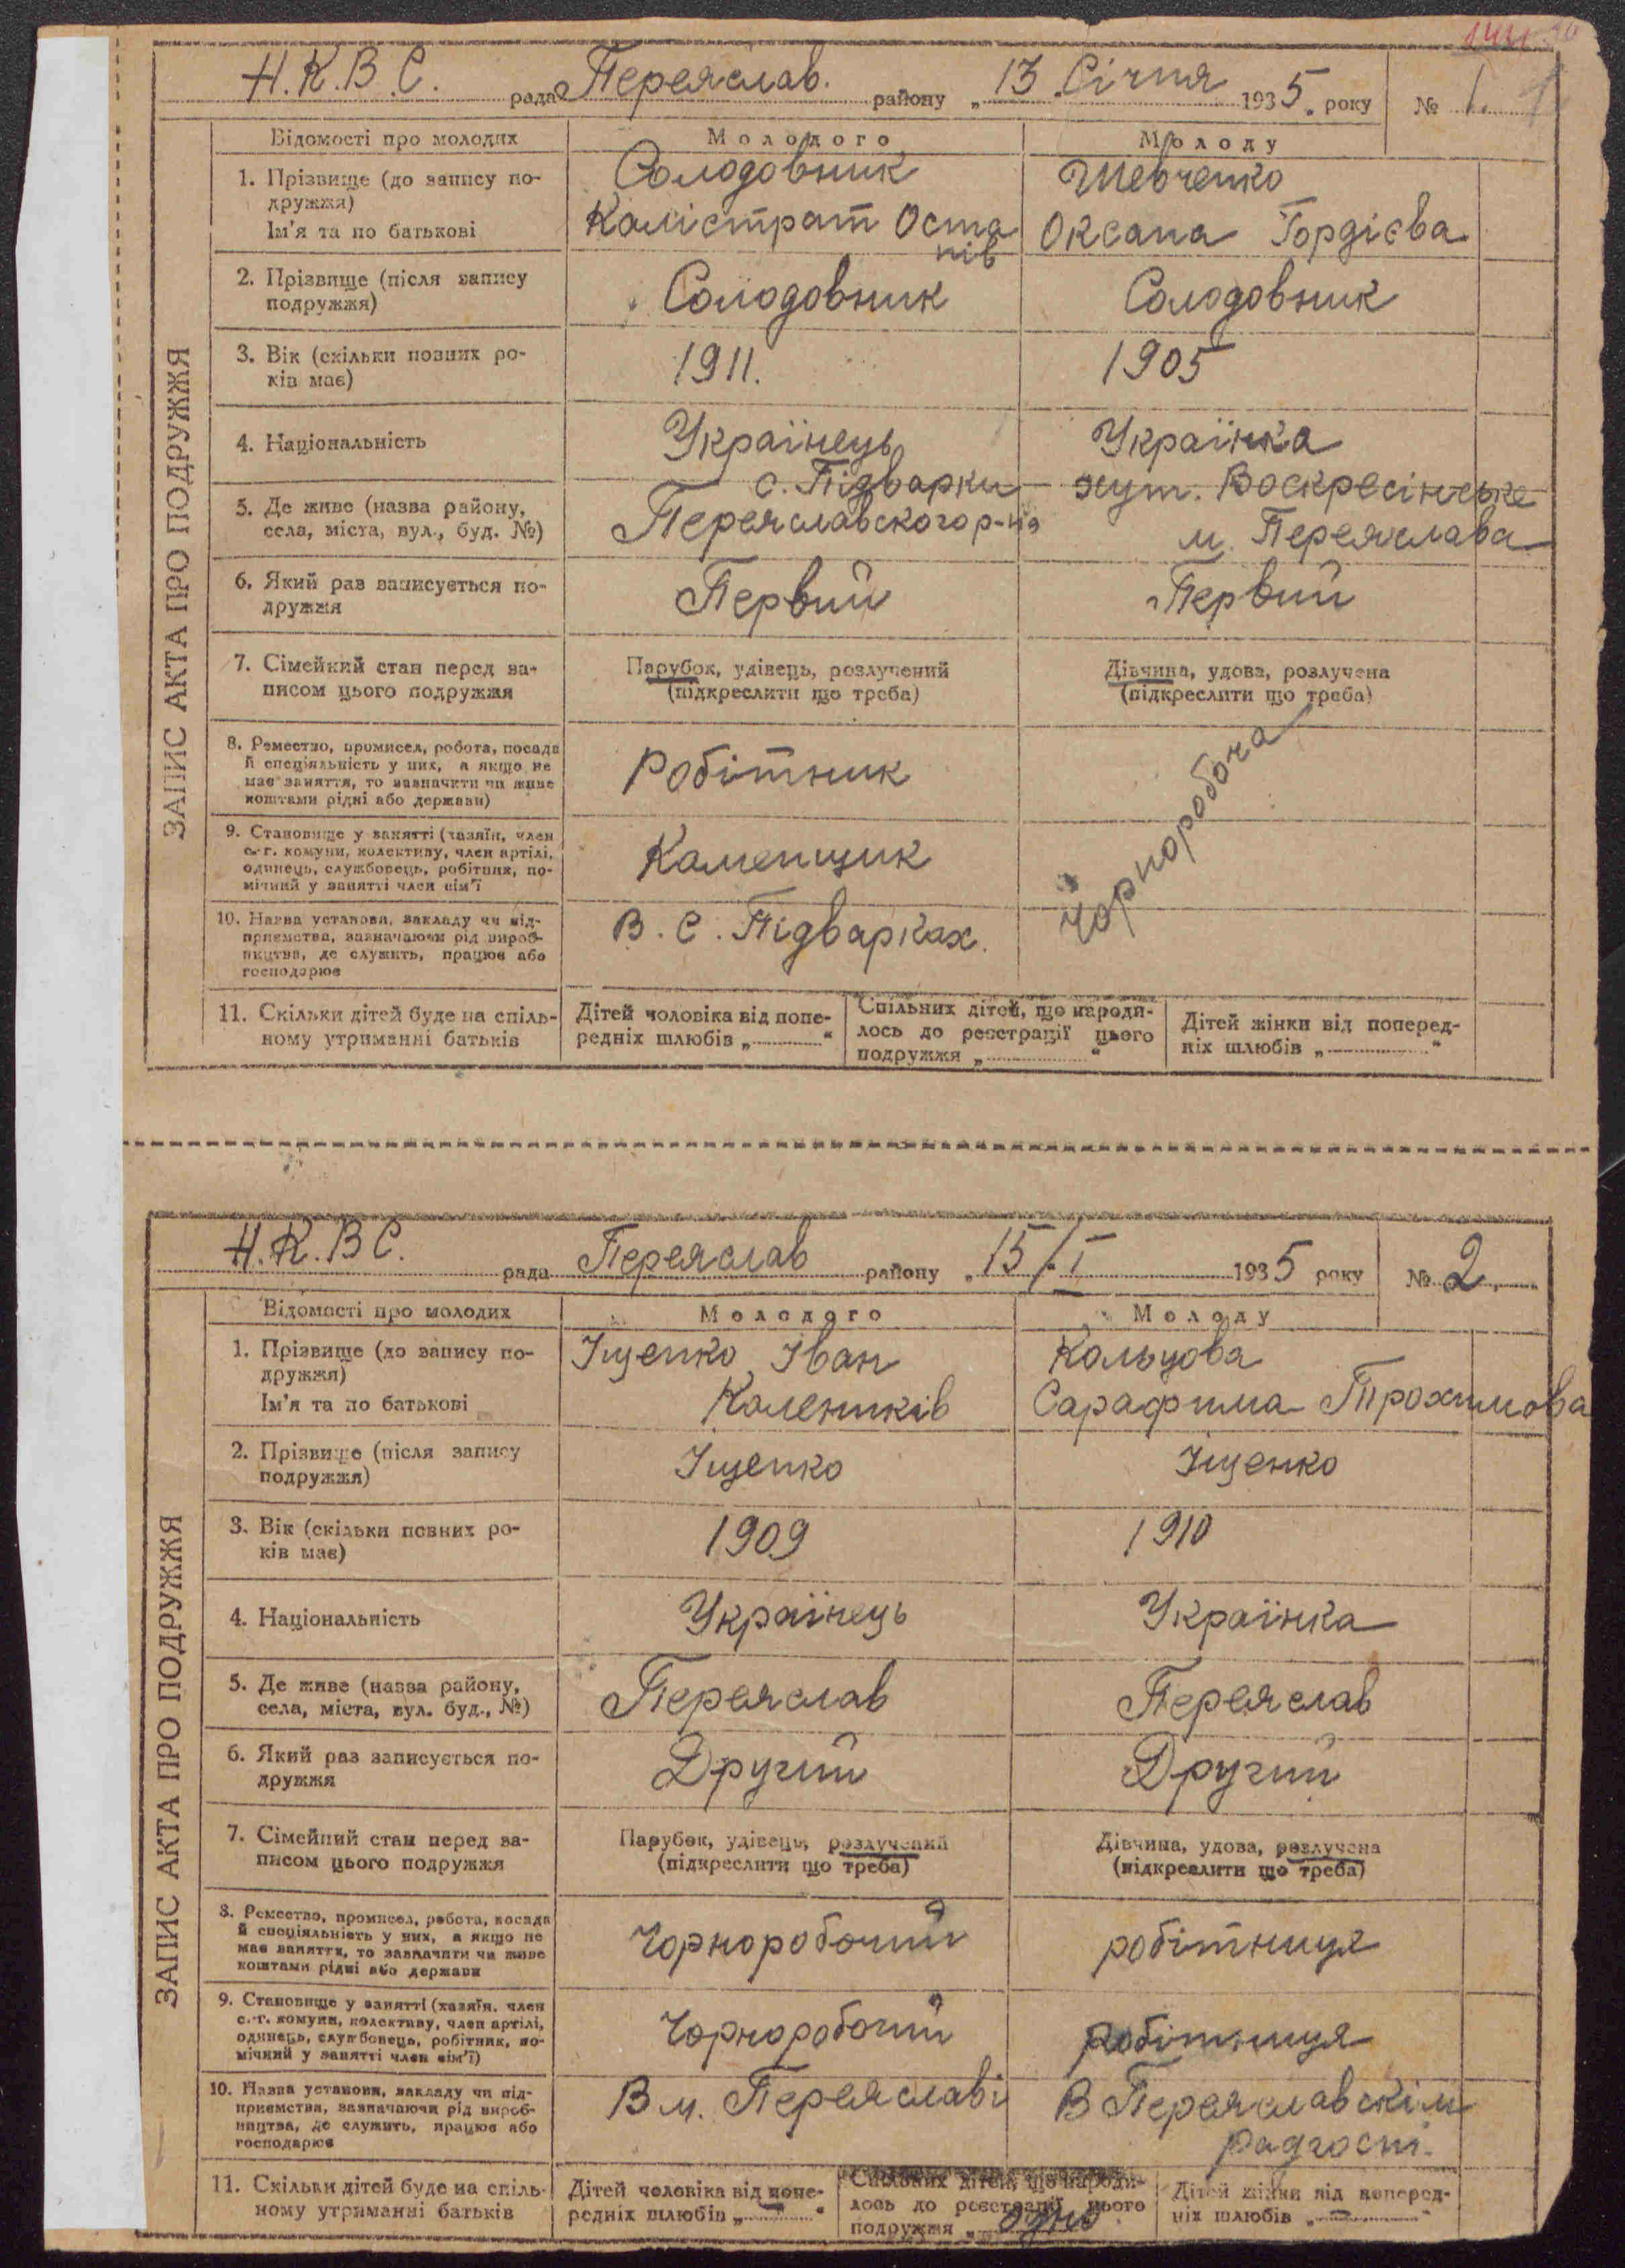 Н.К.В.С. рада Переяслав. району „13 Січня 1935 „ року № 1.
ЗАПИС АКТА ПРО ПОДРУЖЖЯ
Відомості про молодих
Молодого
Молоду
1. Прізвище (до запису по-
дружжя)
Ім'я та по батькові
Солодовник
Калістрат Оста
пів
Шевченко
Оксана Гордієва
2. Прізвище (після запису
подружжя)
Солодовник
Солодовник
3. Вік (скільки повних ро-
ків має)
1911.
1905
4. Національність
Українець
Українка
5. Де живе (назва району,
села, міста, вул., буд. №)
с. Підварки
Переяславского р-на
хут. Воскресінське
м. Переяслава
6. Який раз записується по-
дружжя
Первий
Первий
7. Сімейний стан перед за-
писом цього подружжя
Парубок, удівець, розлучений
(підкреслити що треба)
Дівчина, удова, розлучена
(підкреслити що треба)
8. Ремество, промисел, робота, посада
й спеціяльність у них, а якщо не
має заняття, то зазначити чи живе
коштами рідні або держави)
Робітник
Чорноробоча
9. Становище у занятті (хазяїн, член
с.-г. комуни, колективу, член артілі,
одинець, службовець, робітник, по-
мічний у занятті член сім'ї
Каменщик
10. Назва установи, закладу чи під-
приємства, зазначаючи рід вироб-
ництва, де служить, працює або
господарює
В. С. Підварках.
11. Скільки дітей буде на спіль-
ному утриманні батьків
Дітей чоловіка від попе-
редніх шлюбів „ “
Спільних дітей, що народи-
лось до реєстрації цього
подружжя „ “
Дітей жінки від поперед-
ніх шлюбів „ “
Н.К.ВС. рада Переяслав району „ 15/I 1935 року № 2.
ЗАПИС АКТА ПРО ПОДРУЖЖЯ
Відомості про молодих
Молодого
Молоду
1. Прізвище (до запису по-
дружжя)
Ім'я та по батькові
Іщенко Іван
Калеників
Кольцова
Сарафима Трохимова
2. Прізвище (після запису
подружжя)
Іщенко
Іщенко
3. Вік (скільки повних ро-
ків має)
1909
1910
4. Національність
Українець
Українка
5. Де живе (назва району,
села, міста, вул. буд., №)
Переяслав
Переяслав
6. Який раз записується по-
дружжя
Другий
Другий
7. Сімейний стан перед за-
писом цього подружжя
Парубок, удівець, розлучений
(підкреслити що треба)
Дівчина, удова, розлучена
(підкреслити що треба)
8. Ремество, промисел, робота, посада
й спеціяльність у них, а якщо не
має заняття, то зазначити чи живе
коштами рідні або держави
Чорноробочий
робітниця
9. Становище у занятті (хазяїн, член
с.-г. комуни, колективу, член артілі,
одинець, службовець, робітник, по-
мічний у занятті член сім'ї)
Чорноробочий
робітниця
10. Назва установи, закладу чи під-
приємства, зазначаючи рід вироб-
ництва, де служить, працює або
господарює
В м. Переяславі
В Переяславскім
радгоспі.
11. Скільки дітей буде на спіль-
ному утриманні батьків
Дітей чоловіка від попе-
редніх шлюбів „ — “
Спільних дітей, що народи-
лось до реєстрації цього
подружжя „ одно
Дітей жінки від поперед-
ніх шлюбів „ — “